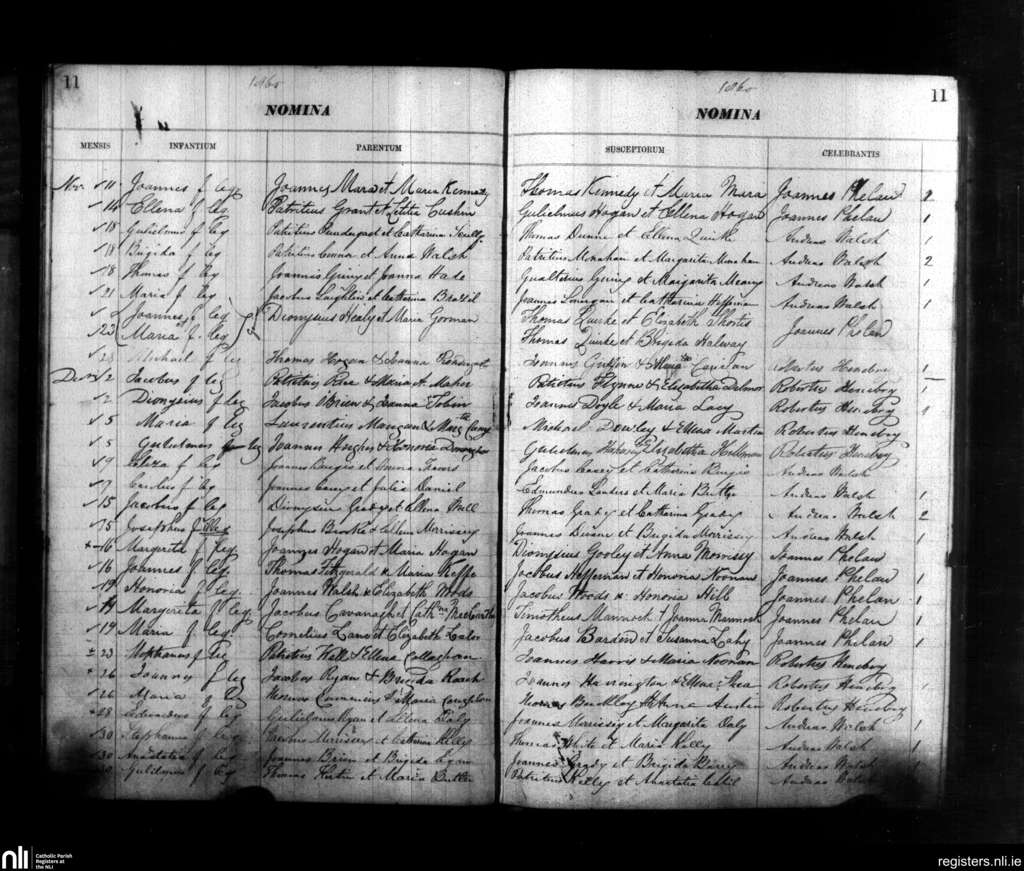 11 1860 1860 11
NOMINA NOMINA
MENSIS INFANTIUM PARENTUM SUSCEPTORUM CELEBRANTIS
Nov. 11 Joannes f leg Joannes Mara et Maria Kennedy Thomas Kennedy et Maria Mara Joannes Phelan 2
14 Ellena f leg Patritius Grant et Letitia Cushin Gulielmus Hogan et Ellena Hogan Joannes Phelan 1
18 Gulielmus f leg Patritius Prendergast et Catharina Thomas Dunne et Ellena Quirke Andreas Walsh 1
18 Brigida f leg Patritius et Anna Walsh Patritius Monahan et Margarita Monahan Andreas Walsh 2
18 Thomas f leg Joannes et Joanna Hade Gualterius et Margarita Meany Andreas Walsh 1
21 Maria f leg Jacobus Laughlin et Catharina Joannes Lonergan et Catharina Heffernan Andreas Walsh 1
Joannes f leg Dionysius Healy et Maria Gorman Thomas Quirke et Elizabeth Shortis Joannes Phelan
23 Maria f. leg Thomas Quirke et Brigida Halway
Michael f leg Thomas Hogan & Joanna Joannes Griffin & Robertus Heneboy 1
Dec 2 Jacobus f leg Patritius & Maria Maher Patritius Flynn & Elizabetha Robertus Heneboy
2 Dionysius f leg Jacobus OBrien & Joanna Tobin Joannes Doyle & Maria Lacy Robertus Heneboy 1
5 Maria f leg Laurentius Mangan & Michael & Ellena Martin Robertus Heneboy
5 Gulielmus f leg Joannes Hughes & Honoria Gulielmus & Elizabetha Robertus Heneboy
9 Eliza f leg Joannes Burgis et Jacobus Casey et Catharina Burgis Andreas Walsh
9 f leg Joannes et Julia Daniel Edmundus Landers et Maria Butler Andreas Walsh 1
15 Jacobus f leg Dionysius Grady et Ellena Thomas Grady et Catharina Grady Andreas Walsh 2
15 Josephus f Josephus Brooke et Morrissey Joannes et Brigida Morrissey Andreas Walsh 1
16 Margarita f leg Joannes Hogan et Maria Hogan Dionysius Gooley et Anna Morrisey Joannes Phelan
16 Joannes f leg Thomas Fitzgerald & Maria Keffe Jacobus Heffernan et Honora Noonan Joannes Phelan 1
19 Honoria f leg. Joannes Walsh & Elizabeth Woods Jacobus Woods & Honoria Hill Joannes Phelan 1
19 Margarita f leg. Jacobus Cavanagh et Cathna McCarthy Timotheus Mannoch & Joanna Mannoch Joannes Phelan 1
19 Maria f leg. Cornelius Lane et Elizabeth Lalor Jacobus Barden et Susanna Lahy Joannes Phelan 1
23 Stephanus f leg Patritius Hall & Ellena Callaghan Joannes Harris & Maria Noonan Robertus Heneboy
26 Joannes f leg Jacobus Ryan & Brigida Roach Joannes Harrington & Robertus Heneboy 1
26 Maria f leg Thomas Cummins & Maria Thomas Buckley & Anna Austin Robertus Heneboy
28 Edmundus f leg Gulielmus Ryan et Ellena Daly Joannes Morrissey et Margarita Daly Andreas Walsh 1
30 Stephanus f leg Jacobus Morrissey et Catharina Kelly Thomas White et Maria Kelly Andreas Walsh 1
30 Anastatia f leg Joannes Brien et Brigida Ryan Joannes Grady et Brigida Barry Andreas Walsh 1
30 Gulielmus f leg Thomas et Maria Butler Patritius Kelly et Anastatia Andreas Walsh
nli Catholic Parish
Registers at
the NLI
registers.nli.ie